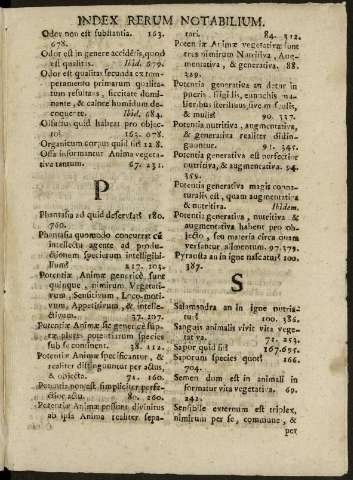 INDEX RERUM NOTABILIUM.
Odor non est substantia. 163.
678.
Odor est in genere accidẽtis, quod
est qualitas. Ibid. 679.
Odor est qualitas secunda ex tem-
peramento primarum qualita-
tum resultans, siccitate domi-
nante, & calore humidum de-
coquente. Ibid. 684.
Olfactus quid habeat pro objec-
to? 163. 678.
Organicum corpus quid sit? 128.
Ossa informantur Anima vegeta-
tiva tantum. 67. 231.
P
Phantasia ad quid deserviat? 180.
760.
Phantasia quomodo concurrat cũ
intellectu agente ad produ-
ctionem specierum intelligibi-
lium? 217. 103.
Potentiæ Animæ genericè sunt
quinque, nimirum Vegetati-
vum, Sensitivum, Loco-moti-
vum, Appetitivum, & intelle-
ctivum. 37. 107.
Potentiæ Animæ sic genericè sup-
tæ plures potentiarum species
sub se continent. 38. 112.
Potentiæ Animæ specificantur, &
realiter distinguuntur per actus,
& objecta. 71. 160.
Potentia non est simpliciter perfe-
ctior actu. 80. 260.
Potentiæ Animæ possunt divinitus
ab ipsa Anima realiter sepa-
rari. 84. 312.
Potentiæ Animæ vegetativæ sunt
tres nimirum Nutritiva, Aug-
mentativa, & generativa. 88.
329.
Potentia generativa an datur in
pueris, senibus, eunuchis, mu-
lieribus sterilibus, similiter senibus,
& mulis? 90. 337.
Potentia nutritiva, augmentativa,
& generativa realiter distin-
guuntur. 91. 345.
Potentia generativa est perfectior
nutritiva, & augmentativa. 94.
359.
Potentia generativa magis conna-
turalis est, quam augmentativa
& nutritiva. Ibidem.
Potentia generativa, nutritiva &
augmentativa habent pro ob-
jecto, seu materia circa quam
versantur alimentum. 97. 373.
Pyrausta an in igne nascatur? 100.
387.
S
Salamandra an in igne nutria-
tur? 100. 386.
Sanguis animalis vivit vita vege-
tativa. 71. 253.
Sapor quid sit? 167. 695.
Saporum species quot? 166.
704.
Semen dum est in animali in
formatur vita vegetativa. 69.
242.
Sensibile externum est triplex,
nimirum per se, commune, &
per